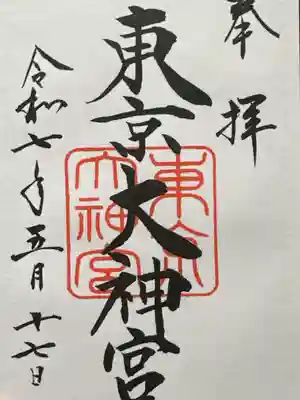 奉拝
東京大神宮
東京大神宮
令和七年五月十七日